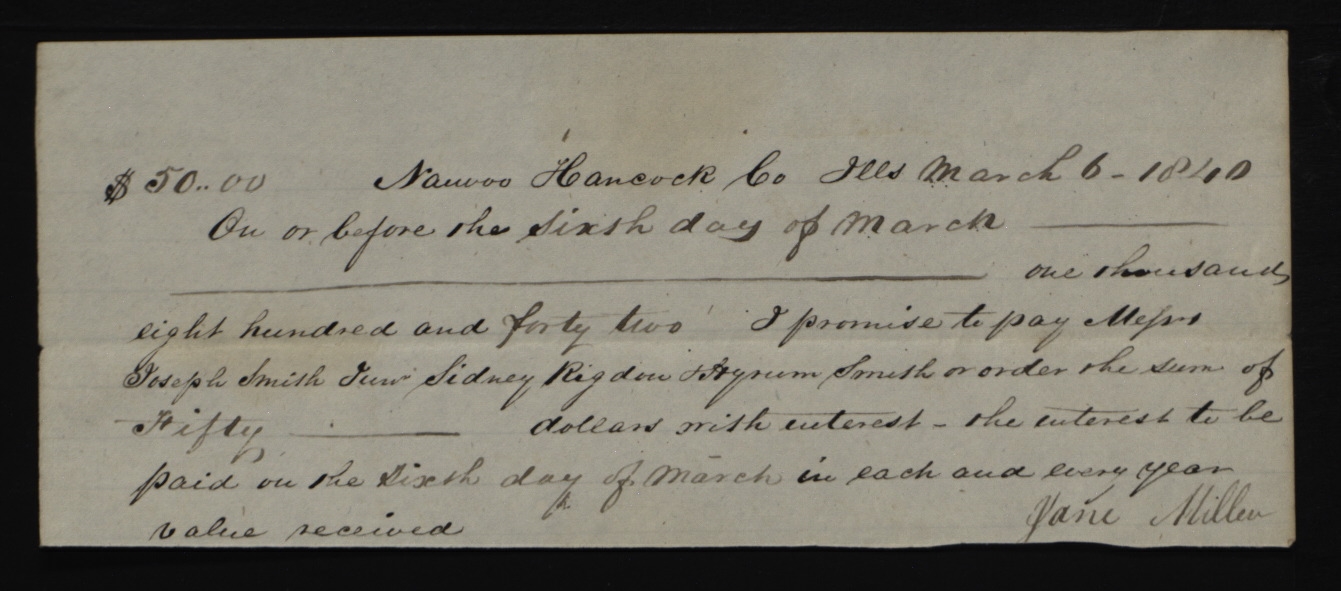 $50..00 Nauvoo Hancock Co Ills March 6 - 1840
On or before the sixth day of March
one thousand
eight hundred and forty two I promise to pay Messrs
Joseph Smith Junr Sidney Rigdon & Hyrum Smith or order the sum of
Fifty dollars with interest - the interest to be
paid on the sixth day of March in each and every year
value received Jane Miller